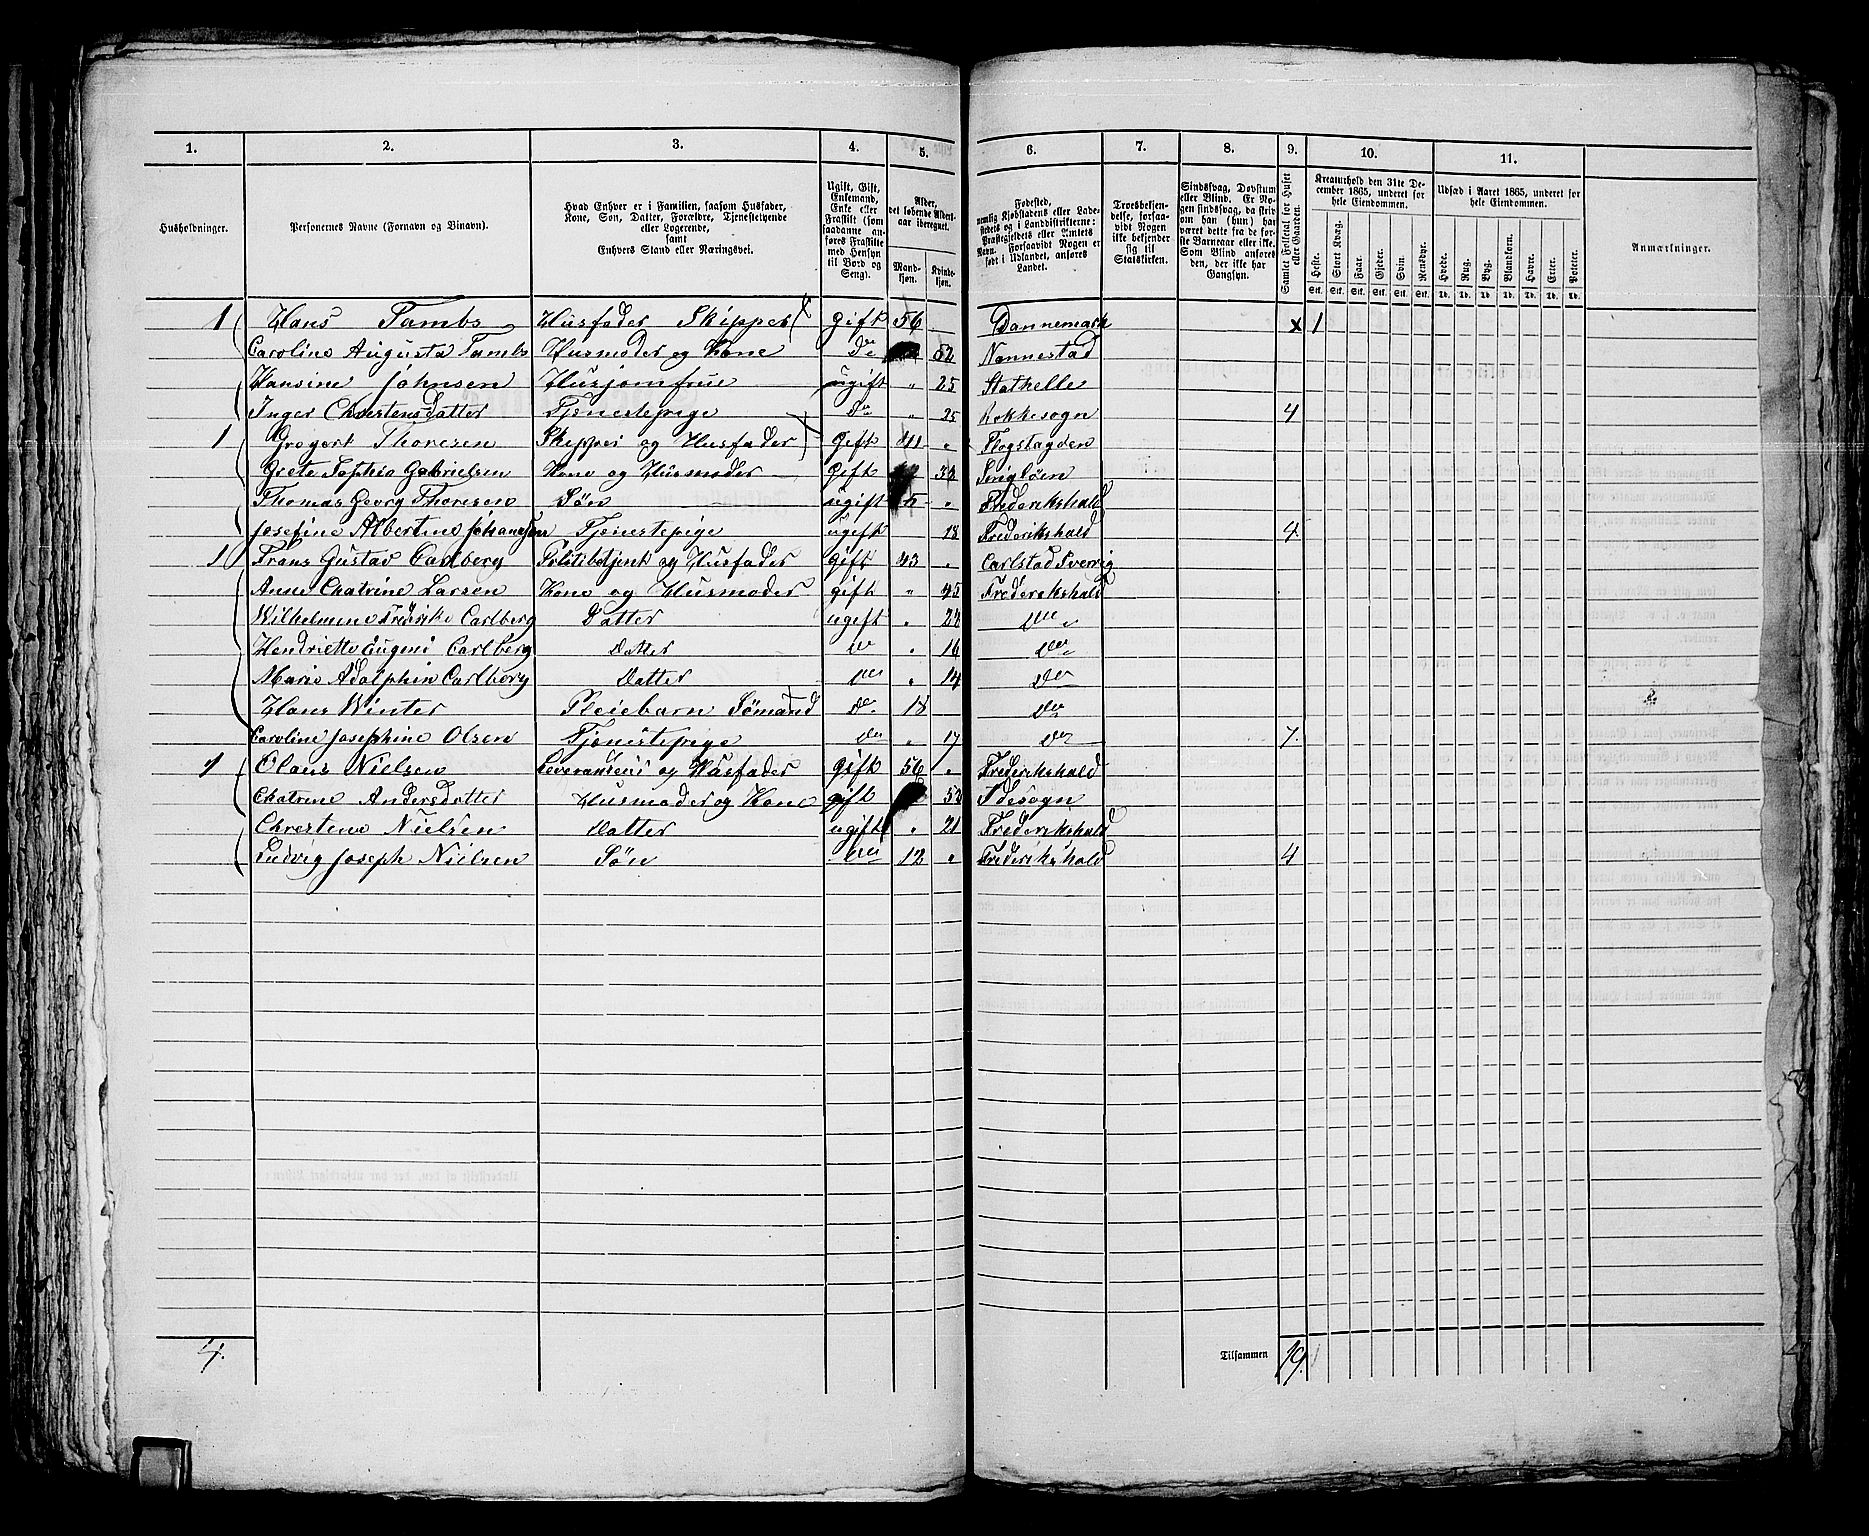 1. 2. 3. 4. 5. 6. 7. 8. 9. 10. 11.
Husholdninger.
Personernes Navne (Fornavn og Tilnavn).
Hvad Enhver er i Familien, saasom Husfader, Kone, Søn, Datter, Forældre, Tjenestetyende eller Logerende, samt Enhvers Stand eller Næringsvei.
Ugift, Gift, Enkemand, Enke eller Fraskilt (som saadanne anføres Fraskilte med Hensyn til Bord og Seng).
Alder, det løbende Aldersaar iberegnet.
Mandkjøn. Kvindekjøn.
Fødested, nemlig Kjøbstadens eller Ladestedets og i Landdistrikterne: Præstegjeldets eller Amtets Navn. Forsaavidt Nogen er født i Udlandet, anføres Landet.
Troesbekjendelse, forsaavidt Nogen ikke bekjender sig til Statskirken.
Sindssvag, Døvstum eller Blind. Er Nogen sindssvag, da skriv om han (hun) har været dette fra de første Barneaar eller ikke. Som Blind anføres den, der ikke har Gangsyn.
Samlet Folketal for Huset eller Gaarden.
Kreaturhold den 31te December 1865, underet for hele Eiendommen.
Heste. Stort Kvæg. Faar. Gjeder. Svin. Rensdyr.
Stk. Stk. Stk. Stk. Stk. Stk.
Udsæd i Aaret 1865, underet for hele Eiendommen.
Hvede. Rug. Byg. Blandkorn. Havre. Erter. Poteter.
Td. Td. Td. Td. Td. Td. Td.
Anmærkninger.
1 Hans Tambs Husfader Skipper gift 56 Dannemark x 1
Caroline Augusta Tambs Husmoder og Kone do 52 Nannestad
Hansine Johnsen Husjomfrue ugift " 25 Stathelle
Inger Chrestensdatter Tjenestepige do " 25 Rokkesogn 4
1 Gregert Thoresen Skipper og Husfader gift 41 "
Grete Sophie Gabrielsen Kone og Husmoder gift
Thomas Georg Thoresen Søn ugift 5 " Frederikshald
Josefine Albertine Johannesen Tjenestepige ugift 18 Frederikshald 4
1 Frans Gustav Carlberg Politibetjent og Husfader gift 43 " Carlstad Sverrig
Anne Chatrine Larsen Kone og Husmoder gift " 45 Frederikshald
Wilhelmine Frederike Carlberg Datter ugift " do
Hendriette Eugeni Carlberg Datter do " 16 do
Marie Adolphin Carlberg Datter do " 14 do
Hans Winter Pleiebarn Sømand do 18 do
Caroline Josephine Olsen Tjenestepige do " 17 do 7.
1 Olaus Nielsen Leverandeur og Husfader gift 56 " Frederikshald
Chatrine Andersdatter Husmoder og Kone gift Idesogn
Chrestene Nielsen Datter ugift " 21 Frederikshald
Ludvig Joseph Nielsen Søn do 12 " Frederikshald 4
4. Tilsammen 19. 1